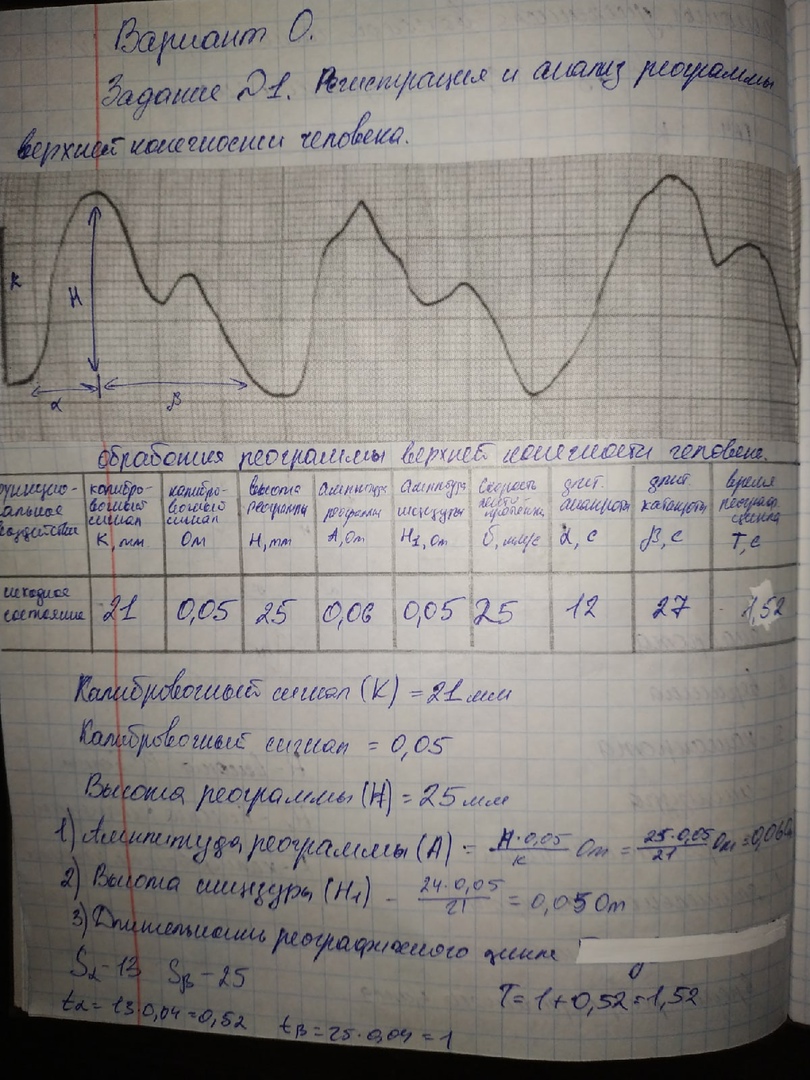 Вариант 0.
Задание №1. Регистрация и анализ реограммы
верхней конечности человека.
K
H
α
β
обработка реограммы верхней конечности человека.
калибро-вочный сигнал K, мм
калибро-вочный сигнал Ом
высота реограммы H, мм
Амплитуда реограммы A, Ом
Амплитуда инцизуры H1, Ом
Скорость
длит. анакроты α, с
длит. катакроты β, с
время реограф. цикла T, с
исходное состояние 21 0,05 25 0,06 0,05 25 12 27 1,52
Калибровочный сигнал (К) = 21 мм
Калибровочный сигнал = 0,05
Высота реограммы (Н) = 25 мм
1) Амплитуда реограммы (А) = H·0,05/K Ом = 25·0,05/21 Ом = 0,06
2) Высота инцизуры (H1) - 24·0,05/21 = 0,05 Ом
3) Длительность реографического цикла
Sα-13 Sβ-25
T=1+0,52=1,52
tα=13·0,04=0,52 tβ=25·0,04=1